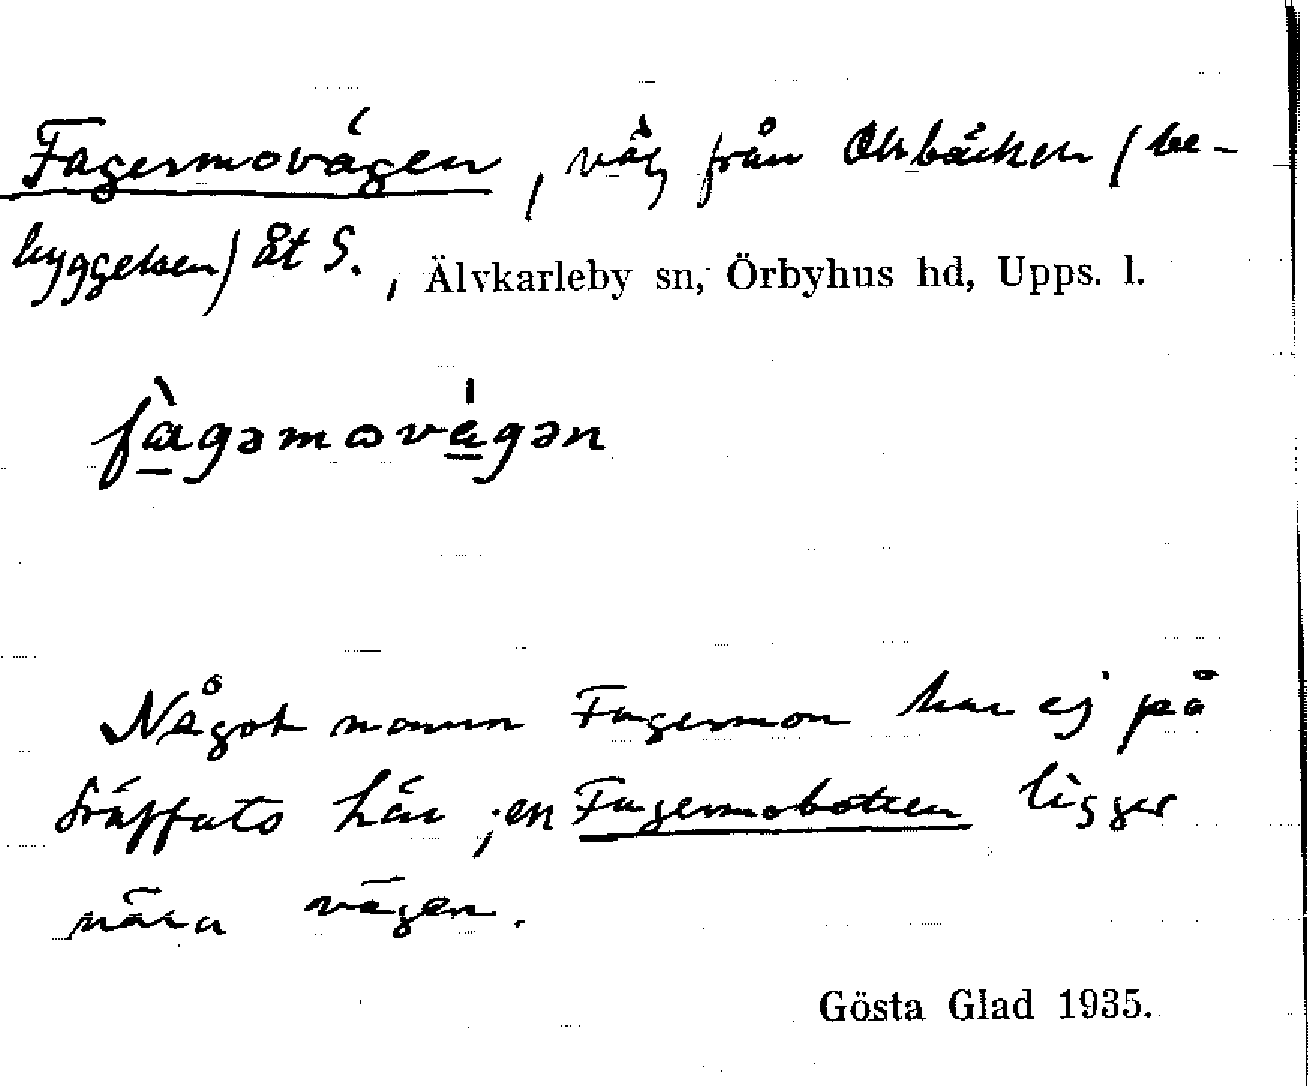 Fagermovägen, väg från Ombäcken (be-
byggelsen) åt S., Älvkarleby sn, Örbyhus hd, Upps. l.
fàgəmovágən
Något namn Fagermon har ej på
träffats här; en Fagermobotten ligger
nära vägen.
Gösta Glad 1935.